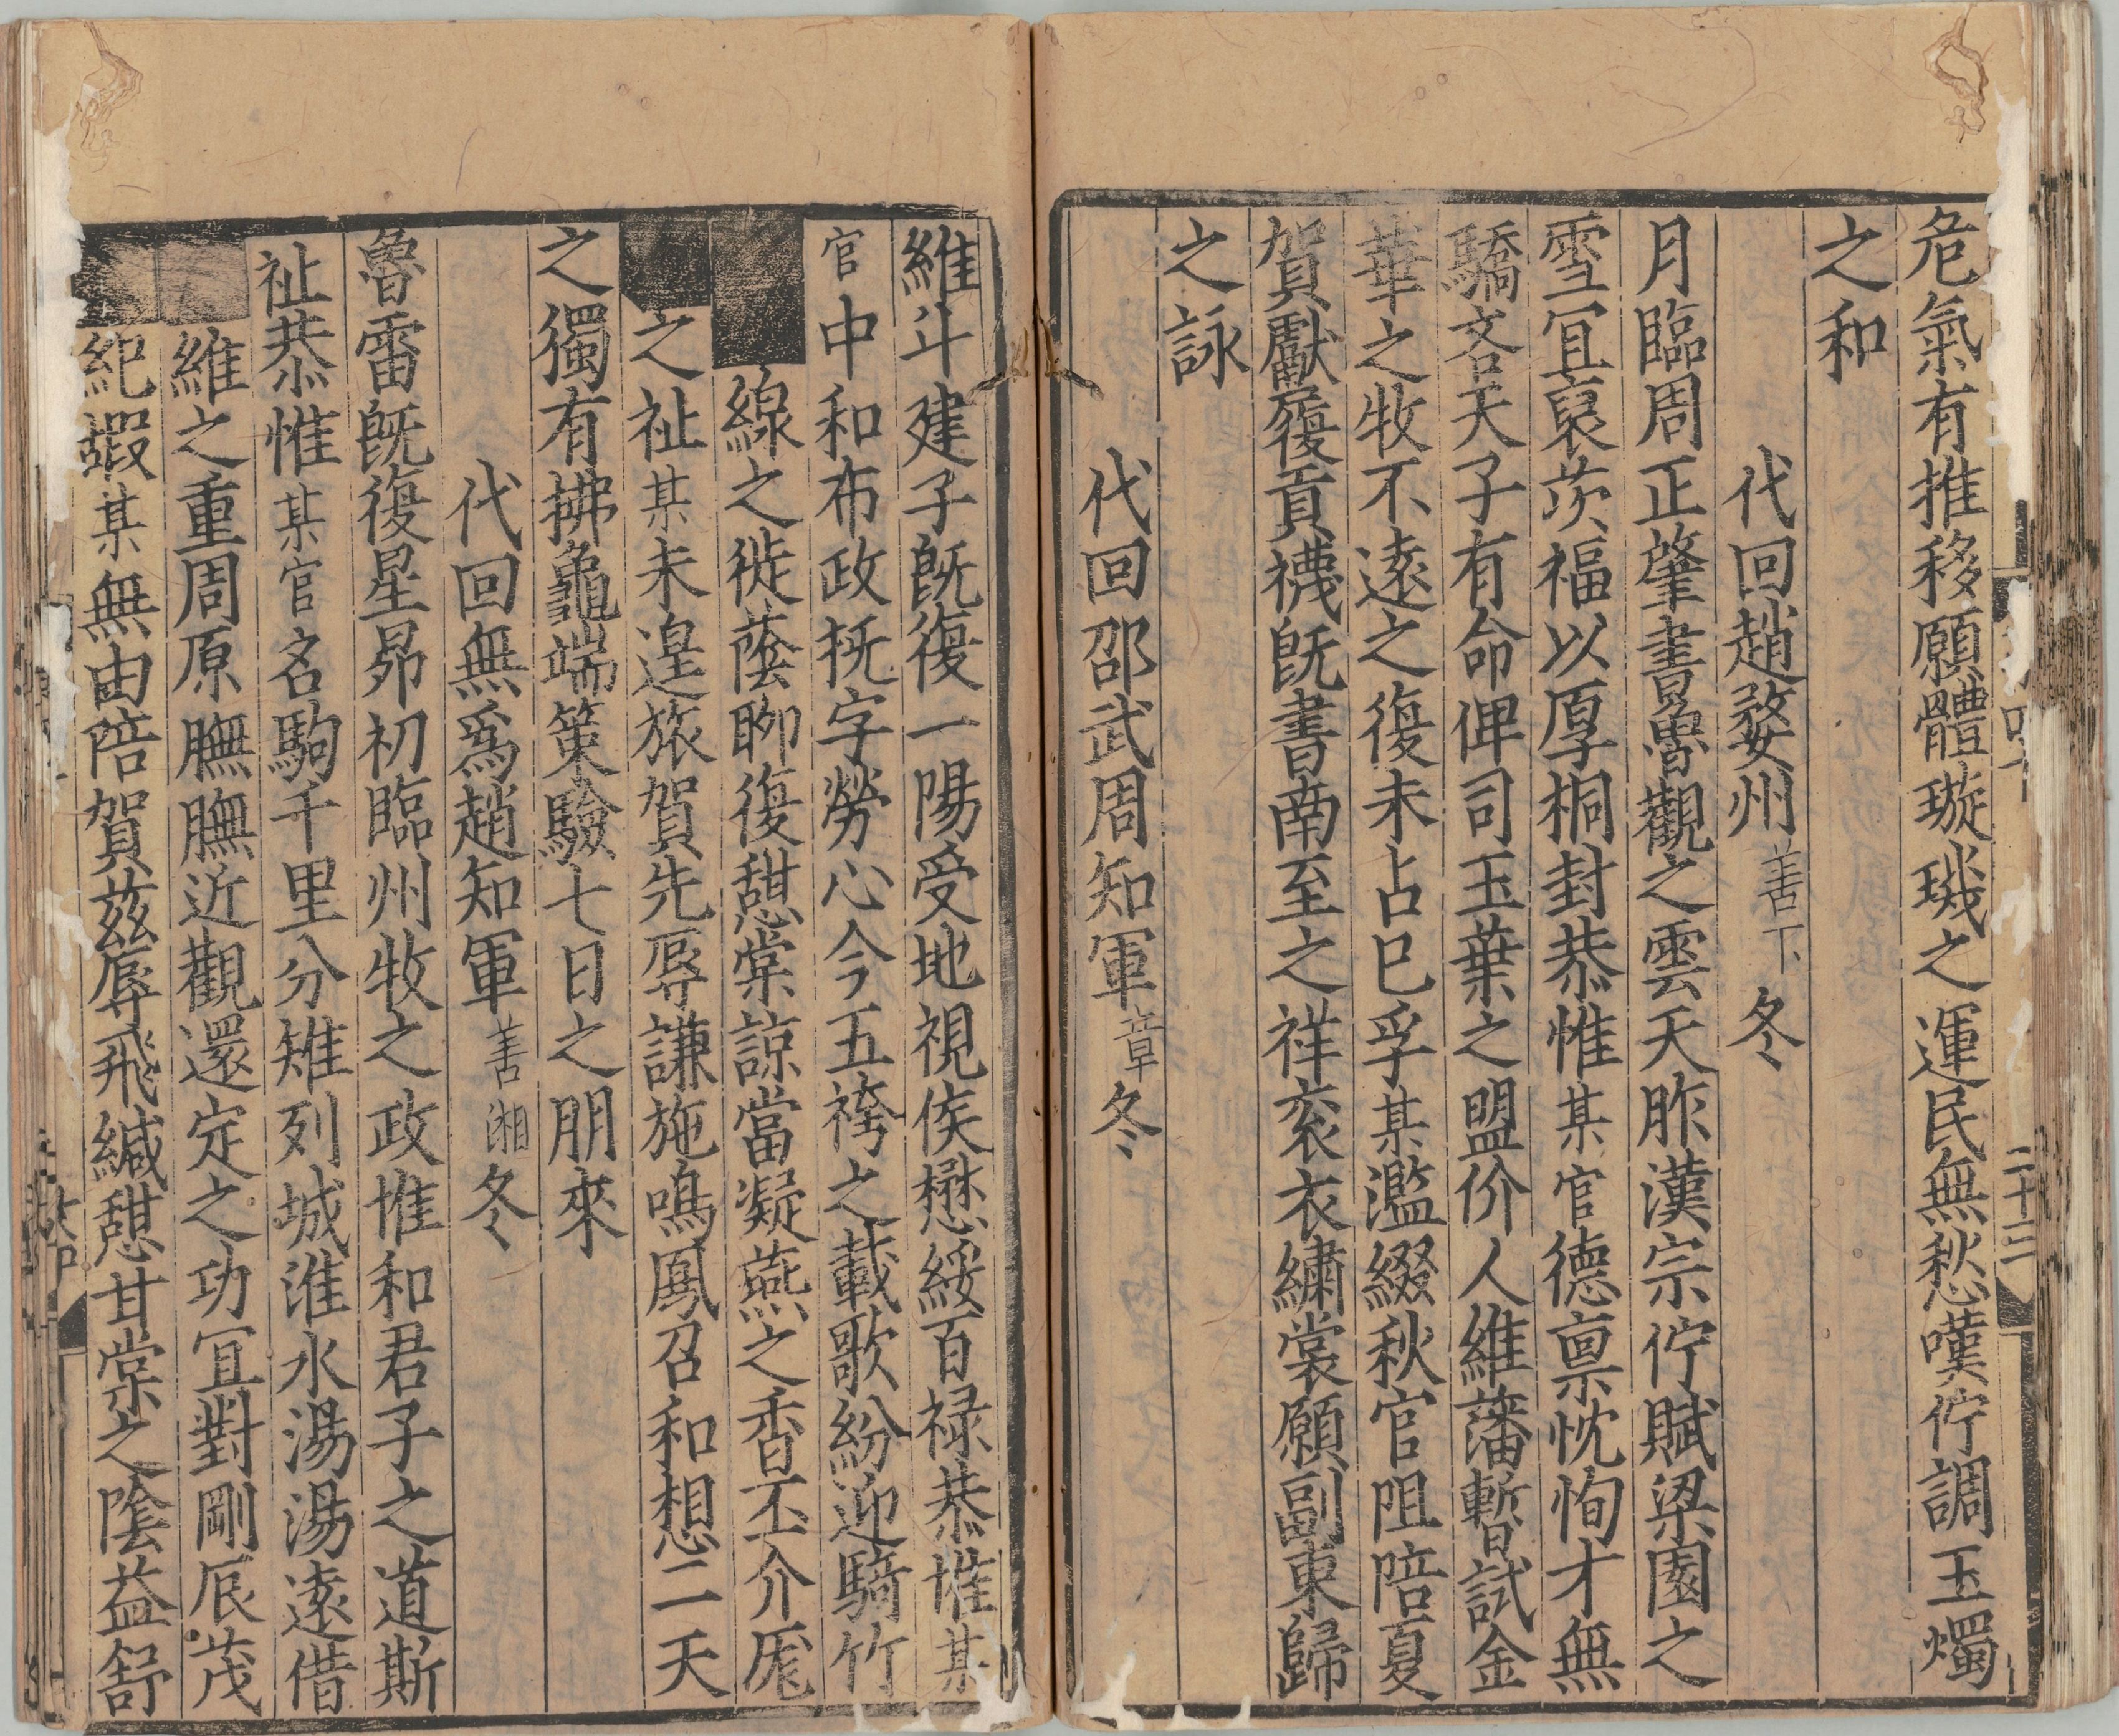 危氣有推移願體璇璣之運民無愁嘆佇調玉燭
之和
代回趙婺州善下冬
月臨周正肇書魯觀之雲天胙漢宗佇賦梁園之
雪冝裒茨福以厚桐封恭惟某官德禀忱恂才無
驕吝天子有命俾司玉葉之盟价人維藩暫試金
華之牧不逺之復未占巳孚某濫綴秋官阻陪夏
賀獻履貢襪旣書南至之祥衮衣繡裳願副東歸
之詠
代回邵武周知軍章冬
二十三
維斗建子旣復一陽受地視侯懋綏百禄恭惟某
官中和布政抚字勞心今五袴之載歌紛迎騎竹
線之徙蔭聊復憇棠諒當凝燕之香丕介厖
之祉某未遑旅賀先辱謙施鳴鳳召和想二天
之獨有拂龜端策驗七日之朋來
代回無爲趙知軍善湘冬
魯雷旣復星昴初臨州牧之政惟和君子之道斯
祉恭惟某官名駒千里分雉列城淮水湯湯逺借
維之重周原膴膴近觀還定之功冝對剛辰茂
紀嘏某無由陪賀兹辱飛緘憇甘棠之隂益舒